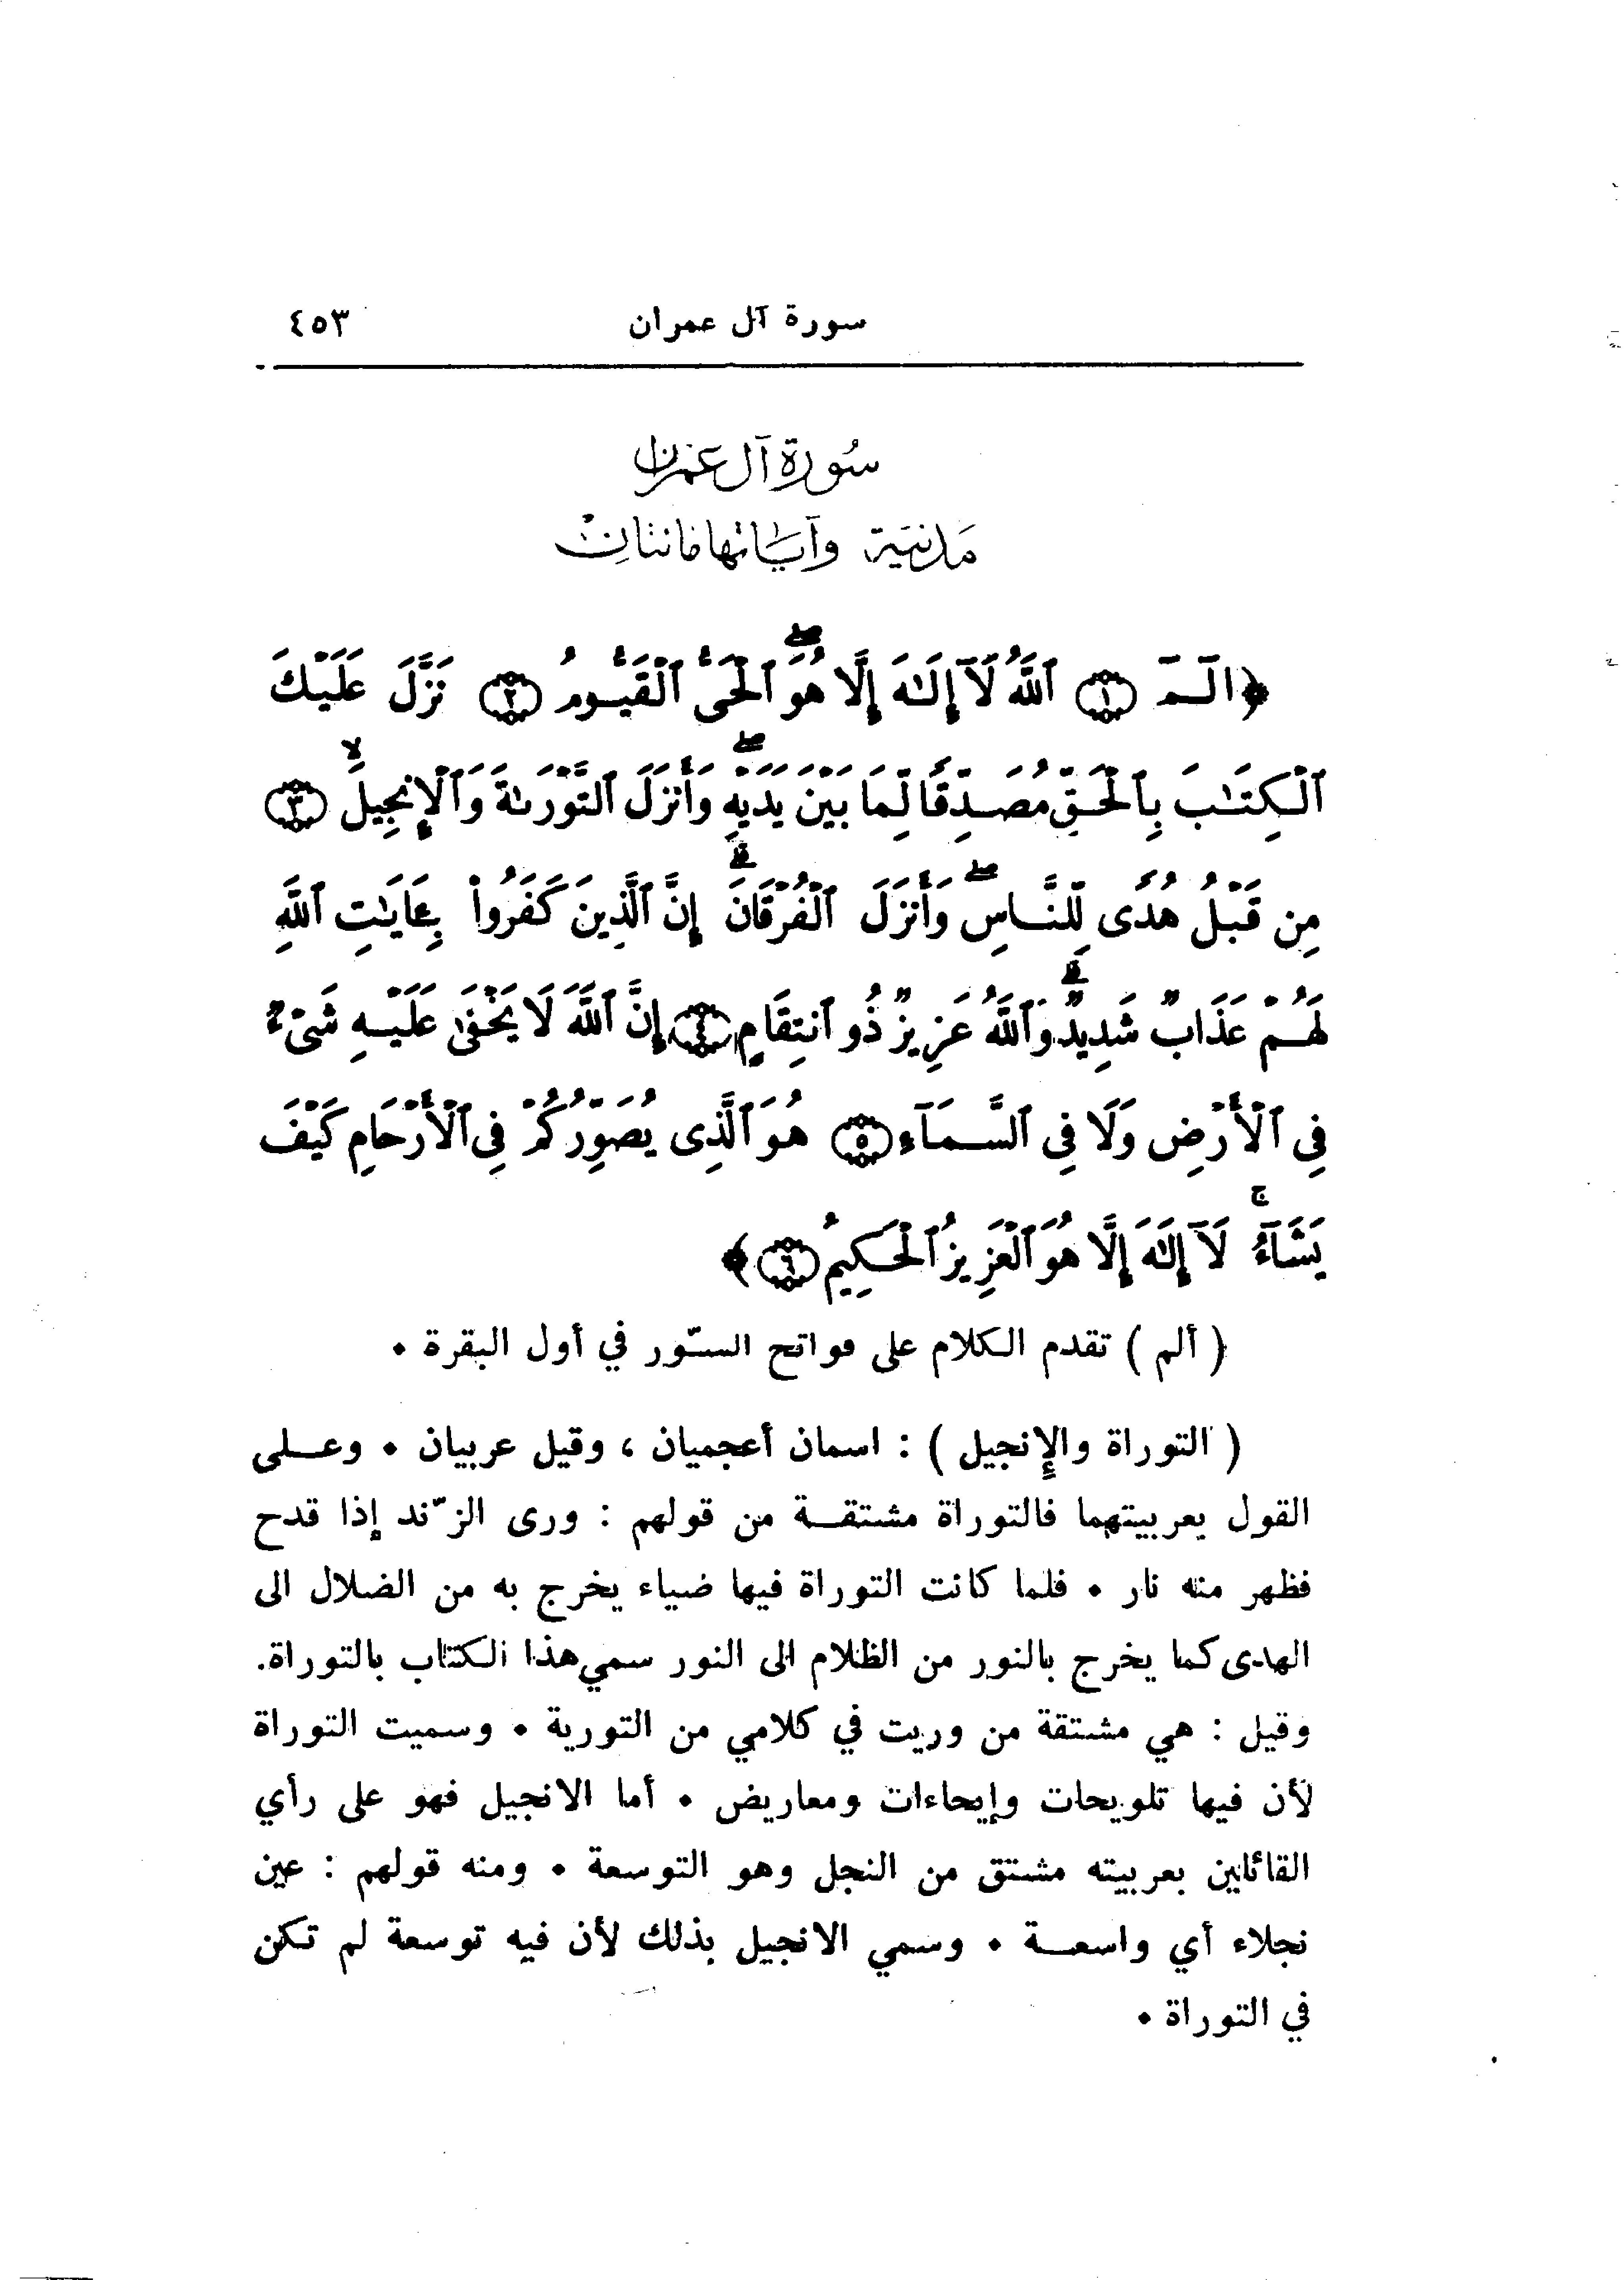 سورة آل عمران ٤٥٣
سُورَة آل عمران
مَدنيَّة وآيَاتها مائتان
﴿الٓمٓ ١ ٱللَّهُ لَآ إِلَٰهَ إِلَّا هُوَ ۖ ٱلۡحَىُّ ٱلۡقَيُّومُ ٢ نَزَّلَ عَلَيۡكَ
ٱلۡكِتَٰبَ بِٱلۡحَقِّ مُصَدِّقٗا لِّمَا بَيۡنَ يَدَيۡهِ ۖ وَأَنزَلَ ٱلتَّوۡرَىٰةَ وَٱلۡإِنجِيلَ ۙ ٣
مِن قَبۡلُ هُدٗى لِّلنَّاسِ ۖ وَأَنزَلَ ٱلۡفُرۡقَانَ ۗ إِنَّ ٱلَّذِينَ كَفَرُواْ بِـَٔايَٰتِ ٱللَّهِ
لَهُمۡ عَذَابٞ شَدِيدٞ ۗ وَٱللَّهُ عَزِيزٞ ذُو ٱنتِقَامٍ ٤ إِنَّ ٱللَّهَ لَا يَخۡفَىٰ عَلَيۡهِ شَىۡءٞ
فِى ٱلۡأَرۡضِ وَلَا فِى ٱلسَّمَآءِ ٥ هُوَ ٱلَّذِى يُصَوِّرُكُمۡ فِى ٱلۡأَرۡحَامِ كَيۡفَ
يَشَآءُ ۚ لَآ إِلَٰهَ إِلَّا هُوَ ٱلۡعَزِيزُ ٱلۡحَكِيمُ ٦﴾
( ألم ) تقدم الكلام على فواتح السّور في أول البقرة ٠
( التوراة والإِنجيل ) : اسمان أعجميان ، وقيل عربيان ٠ وعـلى
القول بعربيتهما فالتوراة مشتقـة من قولهم : ورى الزّند إذا قدح
فظهر منه نار ٠ فلما كانت التوراة فيها ضياء يخرج به من الضلال الى
الهدى كما يخرج بالنور من الظلام الى النور سمي هذا الكتاب بالتوراة.
وقيل : هي مشتقة من وريت في كلامي من التورية ٠ وسميت التوراة
لأن فيها تلويحات وإيحاءات ومعاريض ٠ أما الانجيل فهو على رأي
القائلين بعربيته مشتق من النجل وهو التوسعة ٠ ومنه قولهم : عين
نجلاء أي واسعـة ٠ وسمي الانجيل بذلك لأن فيه توسعة لم تكن
في التوراة ٠